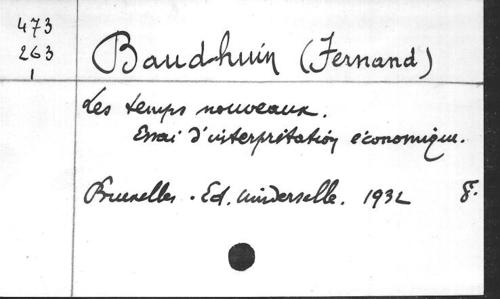 473
263
1
Baudhuin (Fernand)
Les temps nouveaux.
Essai d'interprétation économique.
Bruxelles. Ed. Universelle. 1932 8º.